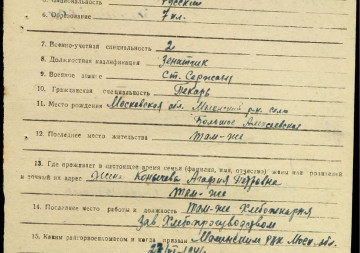 5. Национальность Русский
6. Образование 7 кл.
7. Военно-учетная специальность 2
8. Должностная квалификация Зенитчик
9. Военное звание Ст. Сержант
10. Гражданская специальность Пекарь
11. Место рождения Московская обл. р-н. село
Большое Алексеевское
12. Последнее место жительства Там-же
13. Где проживает в настоящее время семья (фамилия, имя, отчество) жены или родителей
и точный их адрес Жена Агафия Петровна
там-же
14. Последнее место работы и должность Там-же Хлебопекарня
Зав. Хлебопроизводством
15. Каким райгорвоенкоматом и когда призван РВК Моск. обл.
1941